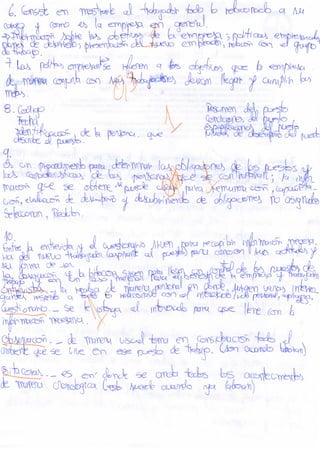 6. Consiste en mostrarle al trabajador todo lo relacionado a su
cargo y como es la empresa en general.
→ Información sobre los objetivos de la empresa, politicas empresariales,
planes de desarrollo, presentación del nuevo empleado, relación con el grupo
de trabajo.
7. Las metas empresariales se refieren a los objetivos que la empresa
de manera conjunta con sus trabajadores desean llegar y cumplir las
metas.
0,5
8. Codigo
Fecha
Identificación, de la persona, que
describe el puesto.
Resumen del puesto
Condiciones del puesto
especificaciones del puesto
del puesto
1
9.
Es un procedimiento para determinar las obligaciones de los puestos y
las caracteristicas de las personas que se contrataran; la infor
mación que se obtiene puede para remuneración, capacita-
ción, evaluación de desempeño y descubrimiento de obligaciones no asignadas
Seleccion,
10.
Entre la entrevista y el cuestionario sirven para recopilar información necesa-
ria del nuevo trabajador (aspirante al puesto) para conocer sus actitudes y
su forma de ser.
La observación y la bitacora sirven para los puestos de
trabajo
Entrevista.- de manera personal en donde surgen varias interro-
gantes respecto a todo lo relacionado con el
Cuestionario.- se le entrega al interesado para que llene con la
información necesaria.
Observación.- de manera visual toma en consideración todo el
ambiente que se vive en ese puesto de trabajo. (son cuando laboran)
Bitacoras.- es en donde se anota todos los acontecimientos
de manera cronologica (esto sucede cuando ya laboran)